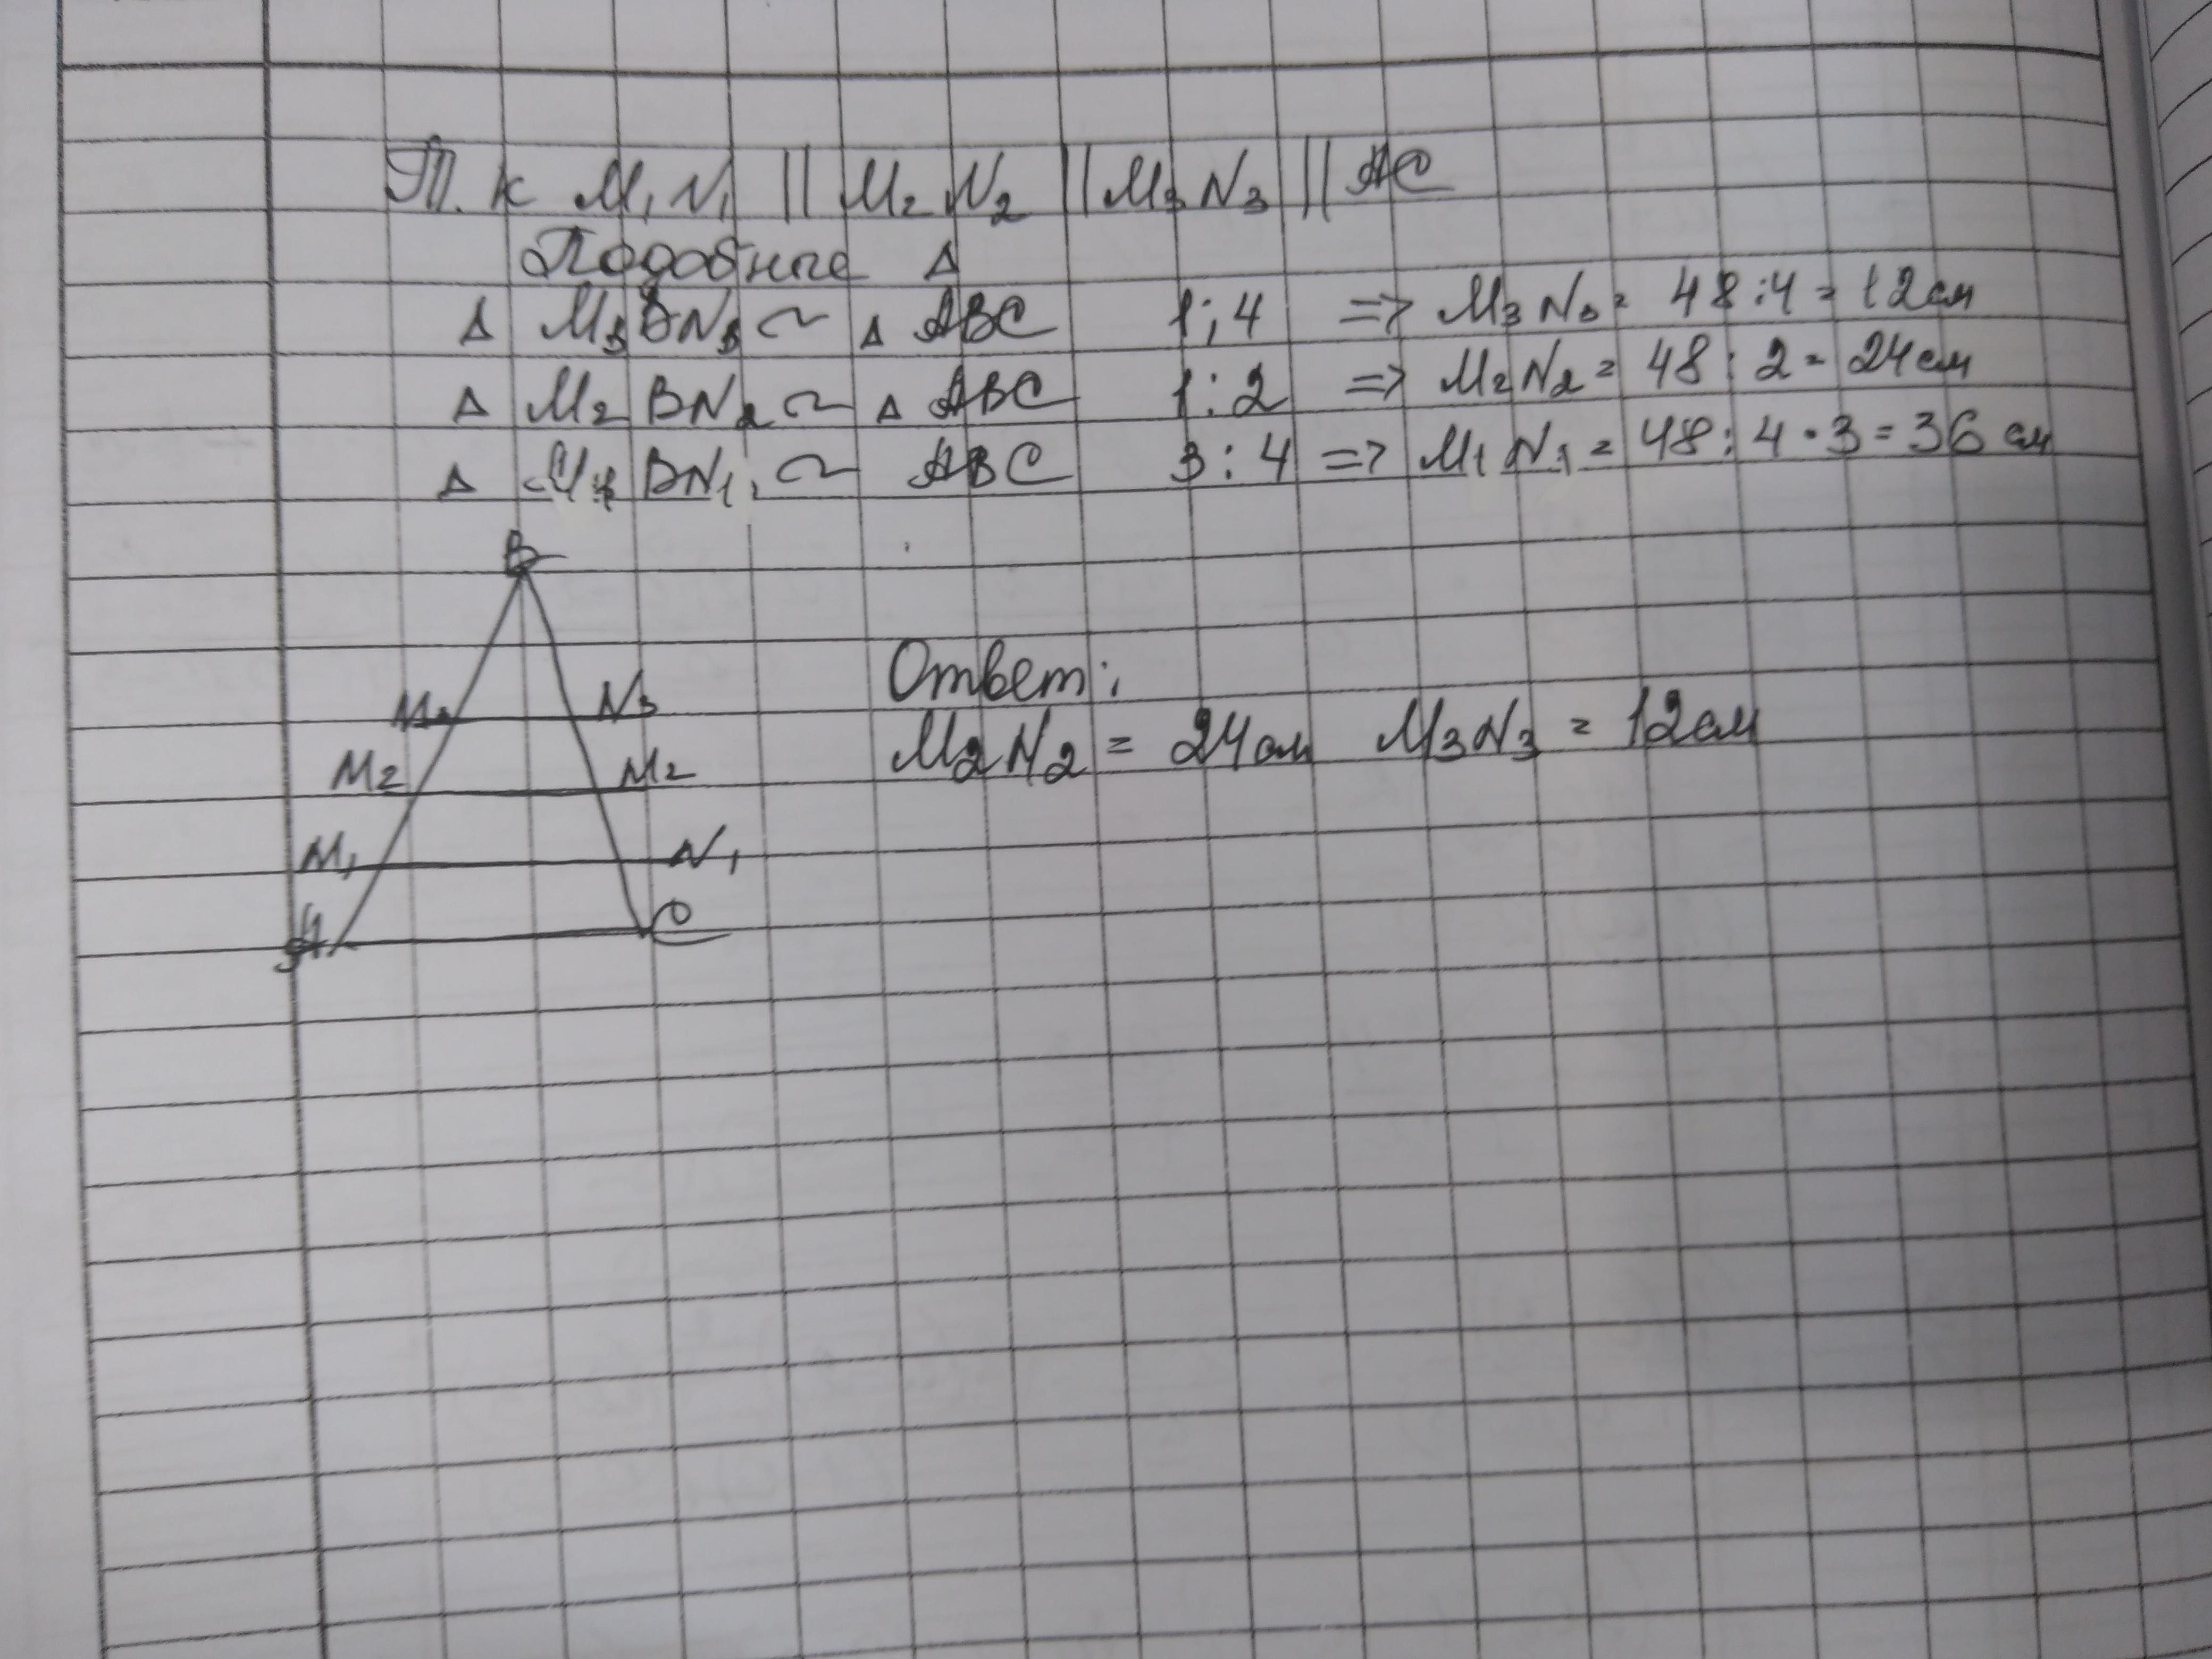 Т. к M₁N₁ || M₂N₂ || M₃N₃ || AC
Подобные Δ
Δ M₃BN₃ ~ Δ ABC 1:4 => M₃N₃ = 48:4 = 12см
Δ M₂BN₂ ~ Δ ABC 1:2 => M₂N₂ = 48:2 = 24см
Δ M₁BN₁ ~ ABC 3:4 => M₁N₁ = 48:4·3 = 36 см
B
M₃ N₃
Ответ:
M₂N₂ = 24см M₃N₃ = 12см
M₂ M₂
M₁ N₁
A C